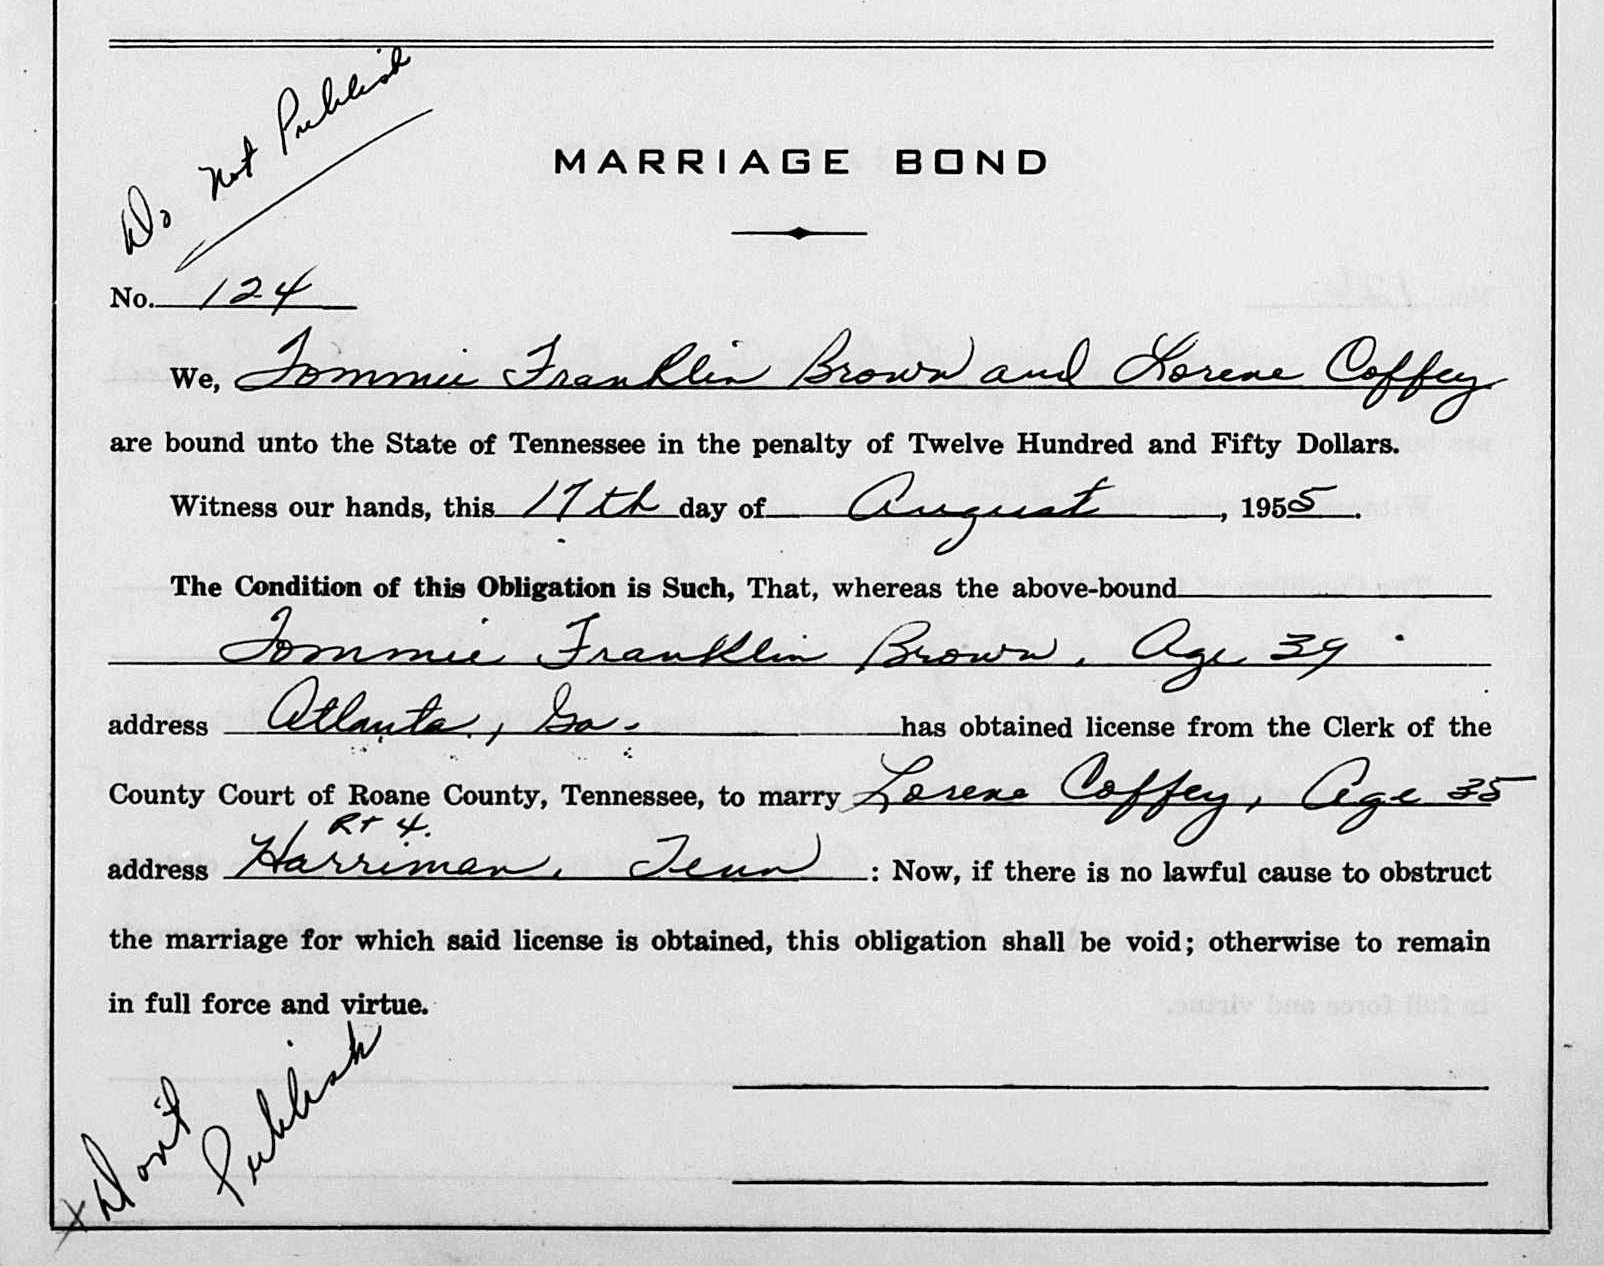 Do Not Publish
MARRIAGE BOND
No. 124
We, Tommie Franklin Brown and Lorene Coffey
are bound unto the State of Tennessee in the penalty of Twelve Hundred and Fifty Dollars.
Witness our hands, this 17th day of August, 1955.
The Condition of this Obligation is Such, That, whereas the above-bound
Tommie Franklin Brown, Age 39
address Atlanta, Ga. has obtained license from the Clerk of the
County Court of Roane County, Tennessee, to marry Lorene Coffey, Age 35
Rt 4.
address Harriman, Tenn : Now, if there is no lawful cause to obstruct
the marriage for which said license is obtained, this obligation shall be void; otherwise to remain
in full force and virtue.
x Don't
Publish